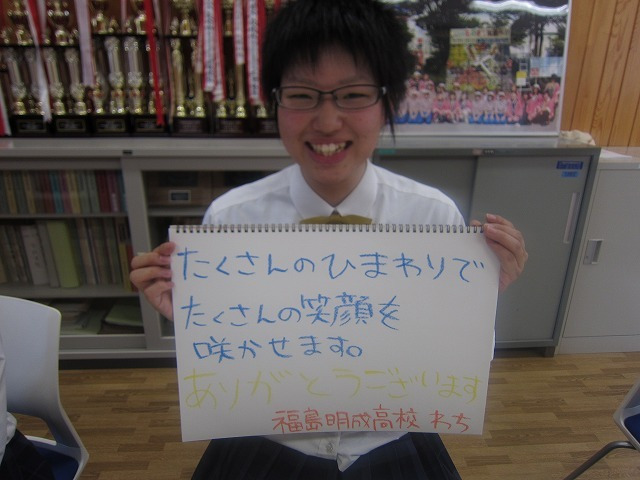 たくさんのひまわりで
たくさんの笑顔を
咲かせます。
ありがとうございます
福島明成高校 わち